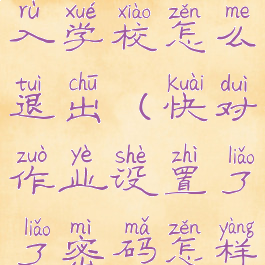 rù xué xiào zěn me
入学校怎么
tuì chū kuài duì
退出(快对
zuò yè shè zhì liǎo
作业设置了
liǎo mì mǎ zěn yàng
了密码怎样